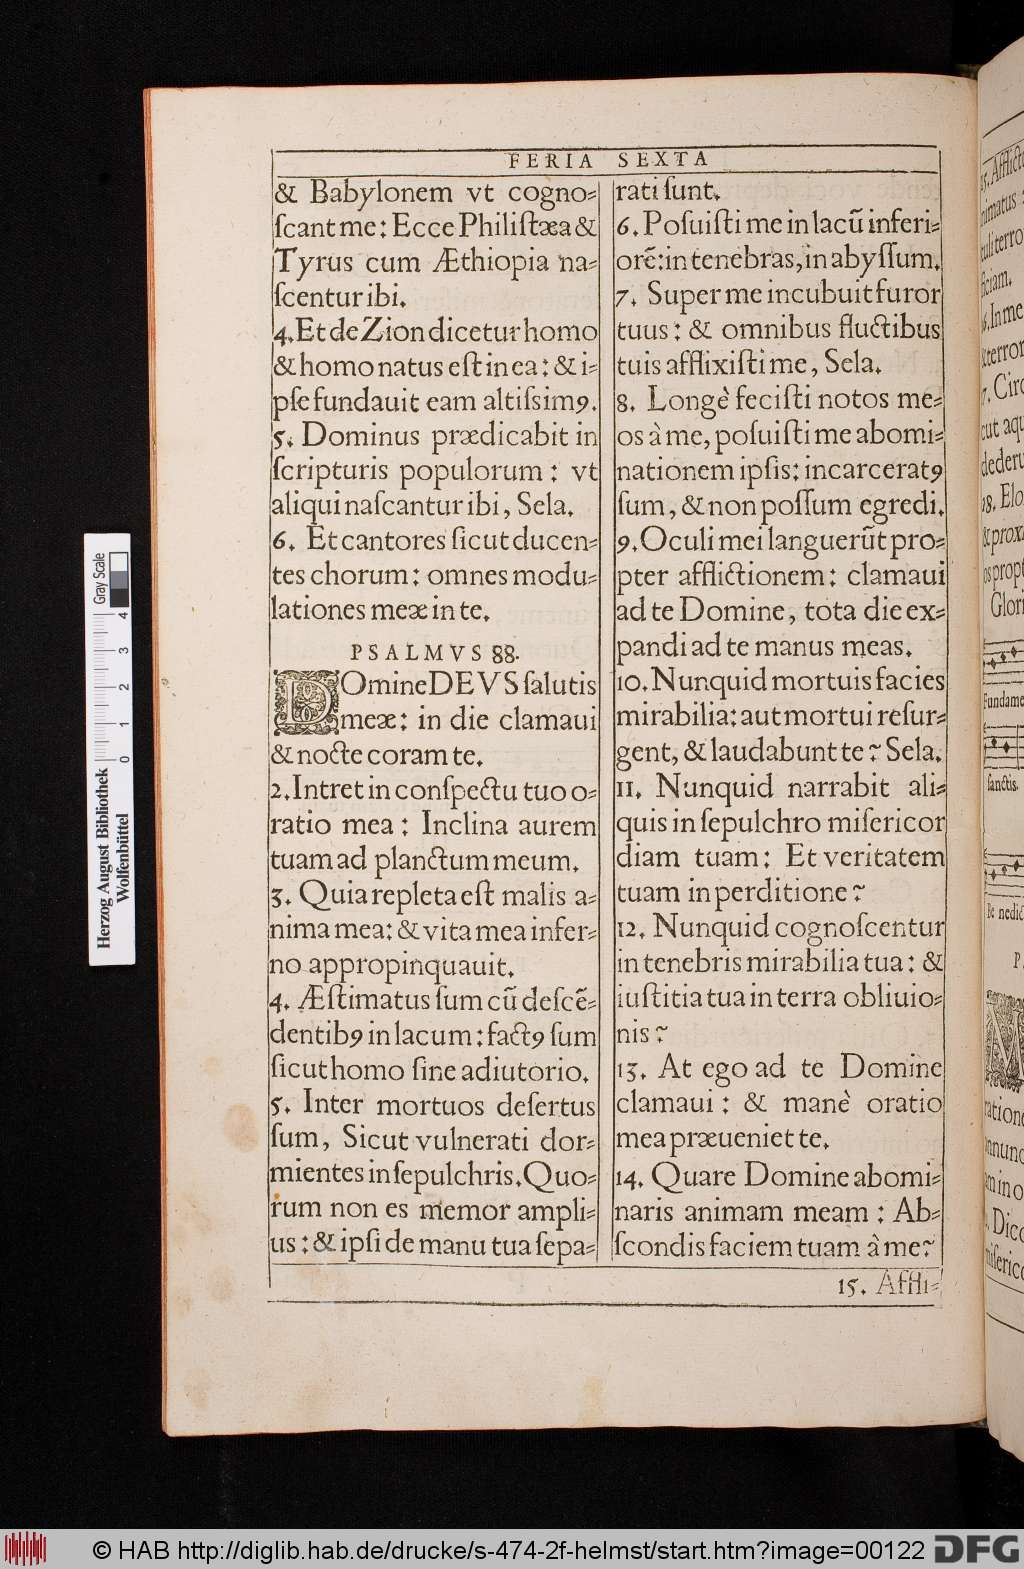 FERIA SEXTA
& Babylonem vt cogno-
ſcant me: Ecce Philiſtæa &
Tyrus cum Æthiopia na-
ſcentur ibi.
4. Et de Zion dicetur homo
& homo natus eſt in ea: & i-
pſe fundauit eam altiſsimꝰ.
5. Dominus prædicabit in
ſcripturis populorum: vt
aliqui naſcantur ibi, Sela.
6. Et cantores ſicut ducen-
tes chorum: omnes modu-
lationes meæ in te.
PSALMVS 88.
DOmine DEVS ſalutis
meæ: in die clamaui
& nocte coram te.
2. Intret in conſpectu tuo o-
ratio mea: Inclina aurem
tuam ad planctum meum.
3. Quia repleta eſt malis a-
nima mea: & vita mea infer-
no appropinquauit.
4. Æſtimatus ſum cū deſcē-
dentibꝰ in lacum: factꝰ ſum
ſicut homo ſine adiutorio.
5. Inter mortuos deſertus
ſum, Sicut vulnerati dor-
mientes in ſepulchris. Quo-
rum non es memor ampli-
us: & ipſi de manu tua ſepa-
rati ſunt.
6. Poſuiſti me in lacū inferi-
orē: in tenebras, in abyſſum.
7. Super me incubuit furor
tuus: & omnibus fluctibus
tuis afflixiſti me, Sela.
8. Longè feciſti notos me-
os à me, poſuiſti me abomi-
nationem ipſis: incarceratꝰ
ſum, & non poſſum egredi.
9. Oculi mei languerūt pro-
pter afflictionem: clamaui
ad te Domine, tota die ex-
pandi ad te manus meas.
10. Nunquid mortuis facies
mirabilia: aut mortui reſur-
gent, & laudabunt te? Sela.
11. Nunquid narrabit ali-
quis in ſepulchro miſericor
diam tuam: Et veritatem
tuam in perditione?
12. Nunquid cognoſcentur
in tenebris mirabilia tua: &
iuſtitia tua in terra obliuio-
nis?
13. At ego ad te Domine
clamaui: & manè oratio
mea præueniet te.
14. Quare Domine abomi-
naris animam meam: Ab-
ſcondis faciem tuam à me?
15. Affli-
15. Afflict
ficiam.
16. In me
7. Circ
dederu
18. Elo
& prox
Glori
Fundame
ſanctis.
Be nedic
Herzog August Bibliothek
Wolfenbüttel
0 1 2 3 4
Gray Scale
© HAB http://diglib.hab.de/drucke/s-474-2f-helmst/start.htm?image=00122
DFG